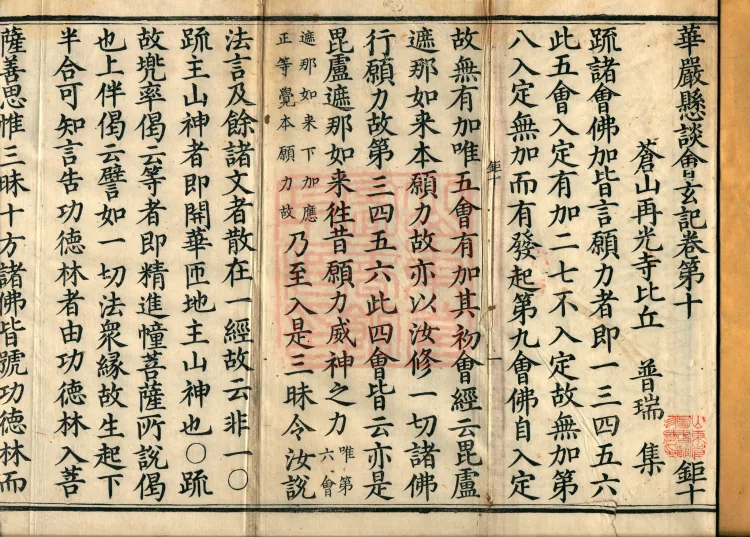 華嚴懸談會玄記卷第十 鉅十
蒼山再光寺比丘 普瑞 集
䟽諸會佛加皆言願力者即一三四五六
此五會入定有加二七不入定故無加第
八入定無加而有發起第九會佛自入定
鉅十 一
故無有加唯五會有加其初會經云毘盧
遮那如来本願力故亦以汝修一切諸佛
行願力故第三四五六此四會皆云亦是
毘盧遮那如来徃昔願力威神之力唯第六會
遮那如来下加應正等覺本願力故乃至入是三昧令汝說
法言及餘諸文者散在一經故云非一〇
䟽主山神者即開華匝地主山神也〇䟽
故兠率偈云等者即精進幢菩薩所說偈
也上伴偈云譬如一切法衆緣故生起下
半合可知言告功德林者由功德林入菩
薩善思惟三昧十方諸佛皆號功德林而